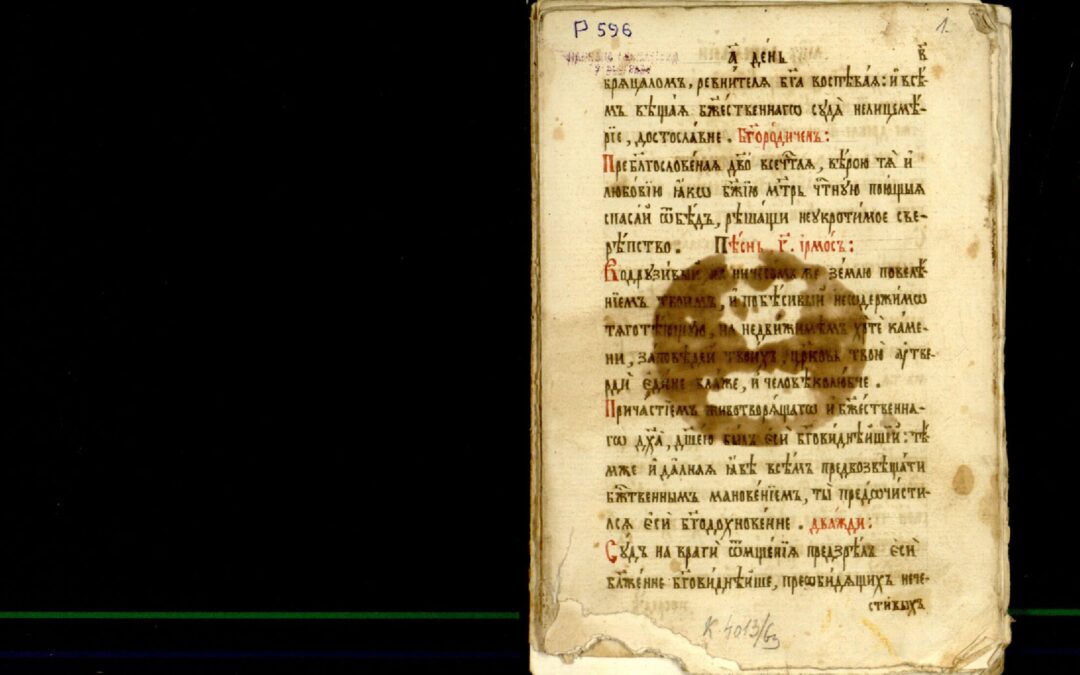 Р 596
1.
а҃ день в҃
бряцаломъ, ревнителя бг҃а воспѣвая: и҆ всѣ-
мъ вѣщая бж҃ественнагѡ суда̀ нелицемѣ-
рїе, досто́славне. Бг҃оро́диченъ:
Пребл҃гословеная дв҃о всечт҃ая, вѣрою тѧ̀ и҆
любовїю ꙗ҆́кѡ бж҃їю мт҃рь чт҃ную пою́щыя
спаса́й ѿ бѣдъ, рѣшащи неукротимое све-
рѣпство. Пѣ́снь г҃. і҆рмо́съ:
Водрузи́вый на ничесомъ же землю повелѣ-
нїемъ твоимъ, и҆ повѣсивый несодержимѡ
тяготѣющую, на недвижимѣмъ хр҃тѐ каме-
ни, заповѣдей твоихъ, црк҃овь твою̀ ᲂутвe-
рдѝ є҆дине бл҃же, и҆ человѣколюбче.
Причастїемъ животворящагѡ и҆ бж҃ественна-
гѡ дх҃а, дш҃ею былъ є҆сѝ бг҃овиднѣйшей: тѣ
мже и҆ далная ꙗ҆́вѣ всѣмъ предвозвѣщати
бж҃твеннымъ мановенїемъ, ты̀ предѡчисти-
лся є҆сѝ бг҃одохновенне. два́жди:
Су́дъ на враги ѿмщенїя предзрѣлъ є҆сѝ
бл҃женне бг҃овиднѣише, преѡбидящихъ нече-
стивыхъ
К 4013/63